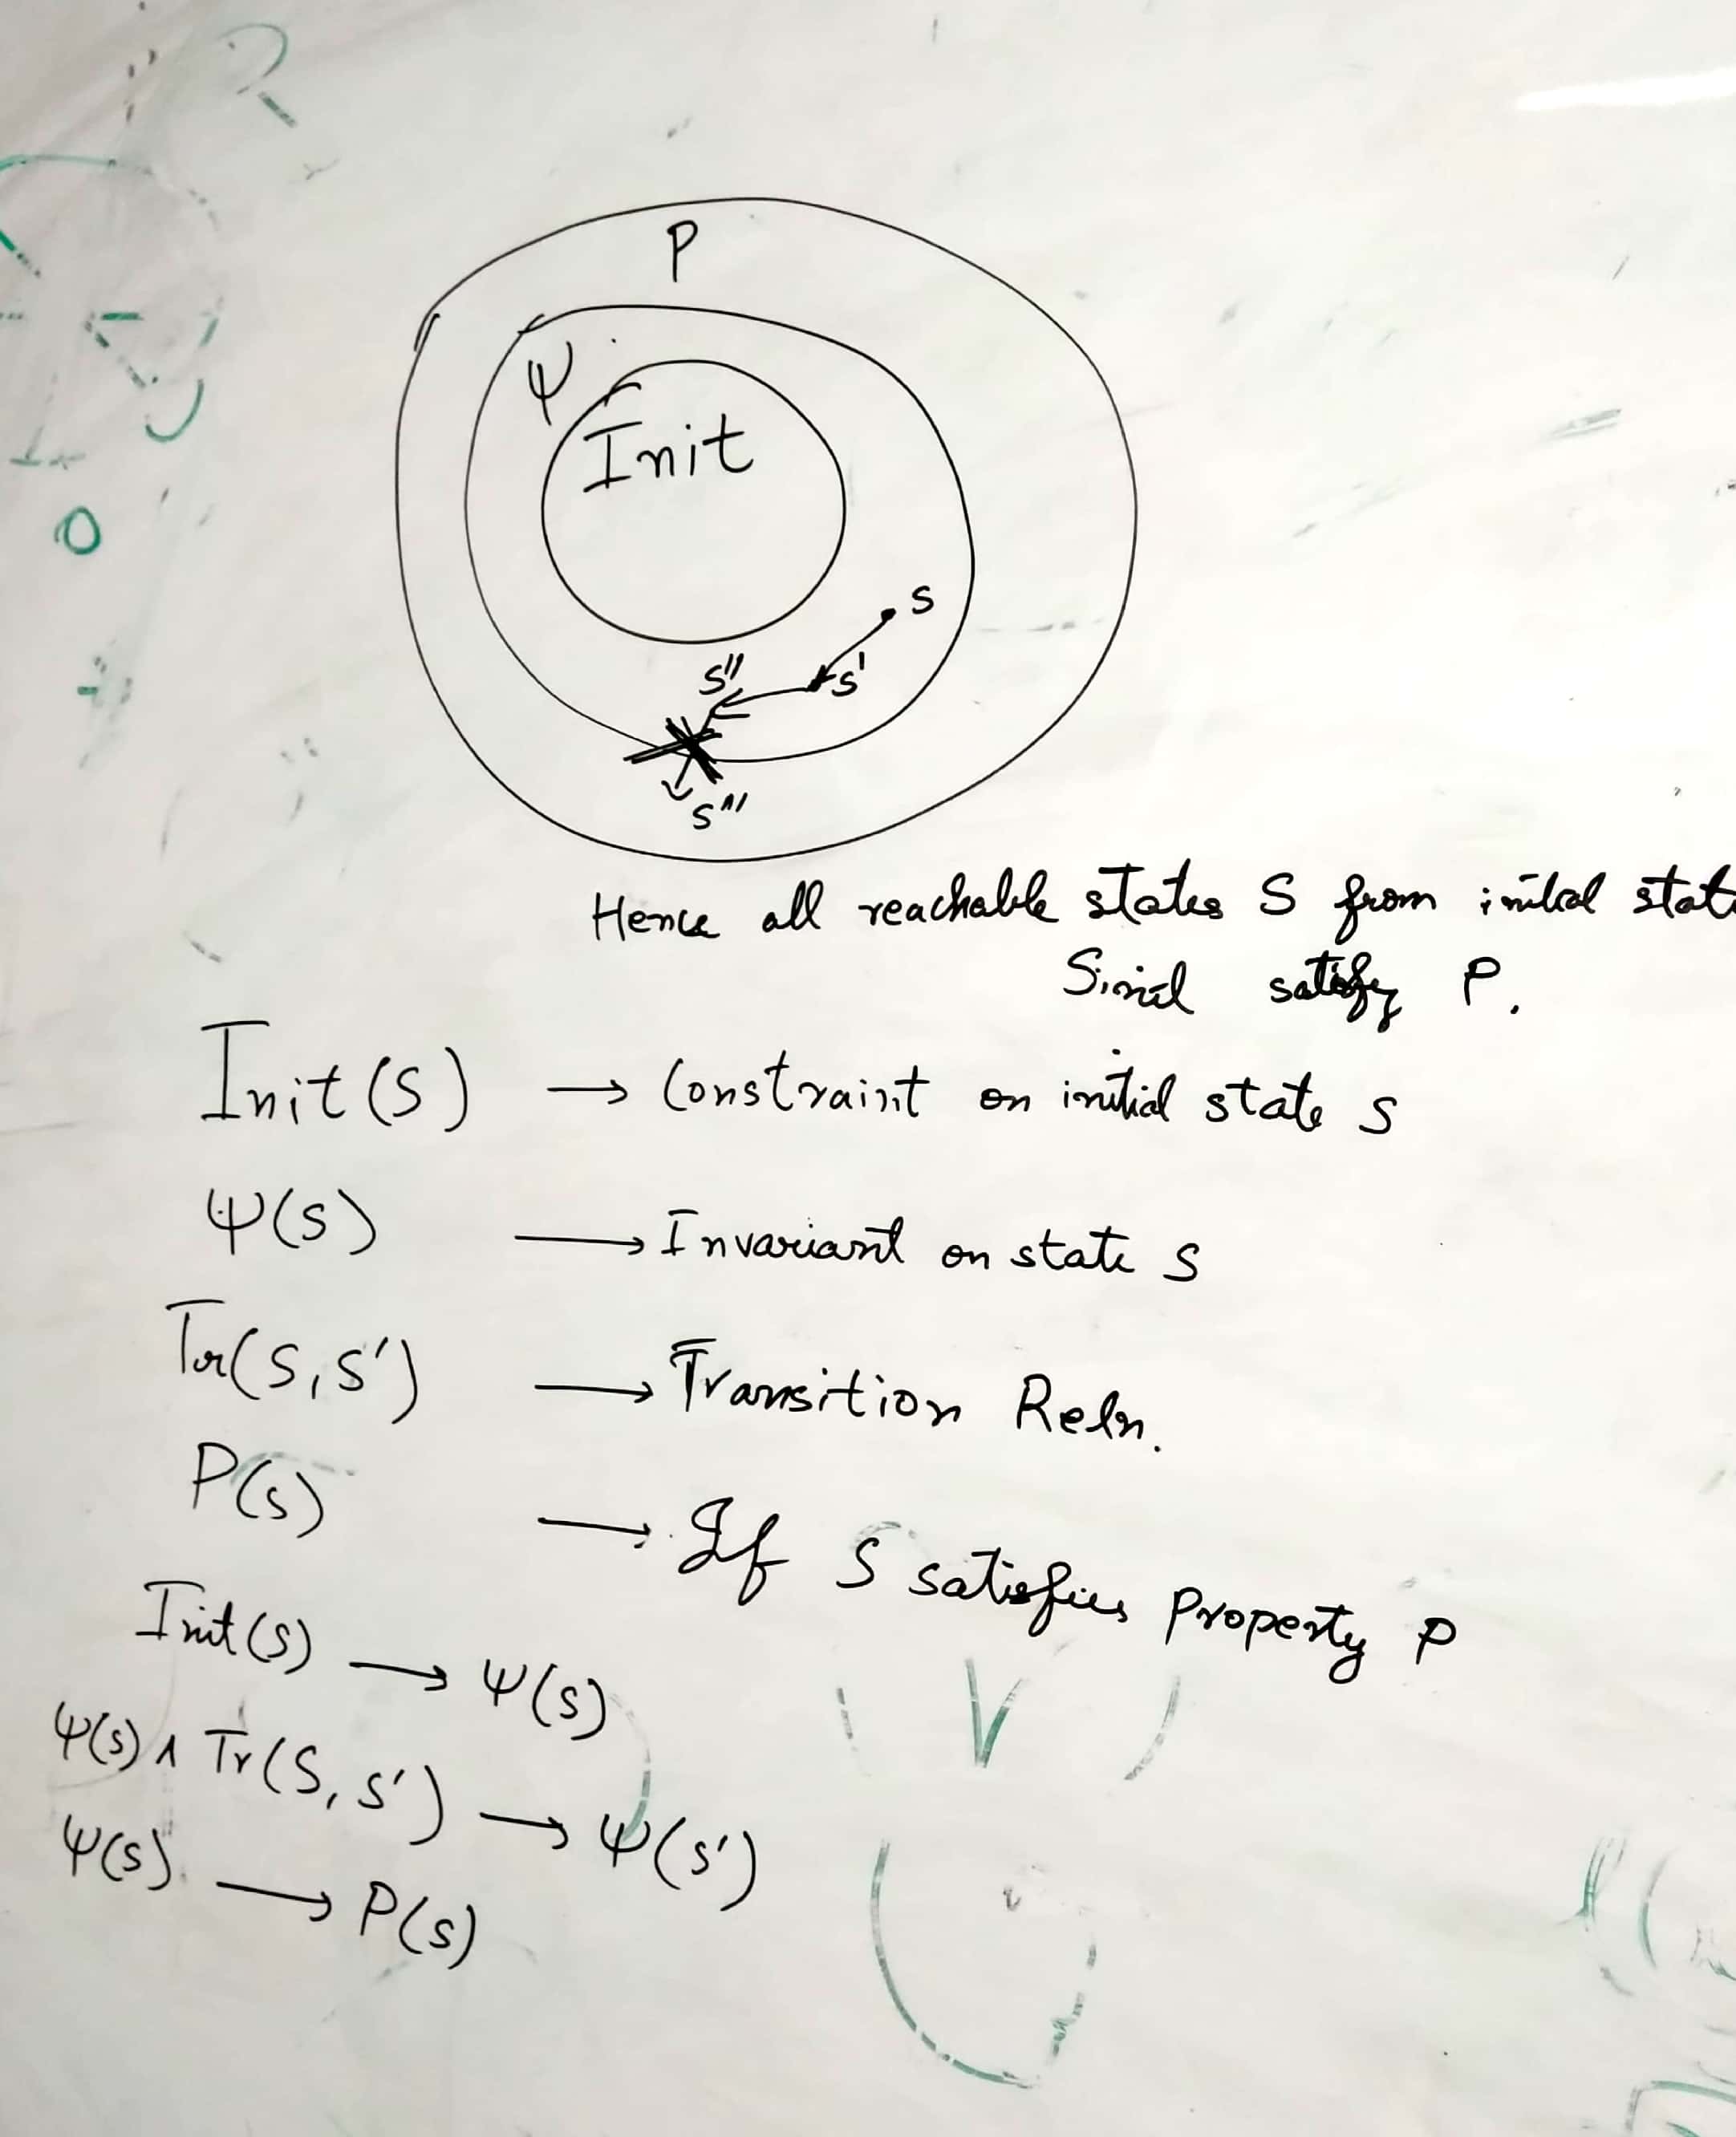 P
Ψ
Init
s
s'
s''
s'''
Hence all reachable states S from initial state
Sinit satisfy P.
Init(s) → Constraint on initial state s
Ψ(s) → Invariant on state s
Tr(s,s') → Transition Reln.
P(s) → If S satisfies Property P
Init(s) → Ψ(s)
Ψ(s) ∧ Tr(s,s') → Ψ(s')
Ψ(s) → P(s)